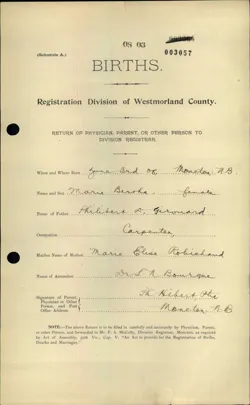 08 03
(Schedule A.)
003057
BIRTHS.
Registration Division of Westmorland County.
RETURN OF PHYSICIAN, PARENT, OR OTHER PERSON TO
DIVISION REGISTRAR.
When and Where Born June 3rd 06 Moncton, N.B
Name and Sex Marie Bertha, female
Name of Father Philibert
Occupation Carpenter
Maiden Name of Mother Marie Elise Robichaud
Name of Accoucheur Dr. L. N. Bourque
Signature of Parent,
Physician or Other
Person, and Post
Office Address
Moncton N B
NOTE.—The above Return is to be filled in carefully and accurately by Physician, Parent,
or other Person, and forwarded to Division Registrar, Moncton, as required
by Act of Assembly, Cap. V. "An Act to provide for the Registration of Births,
Deaths and Marriages."